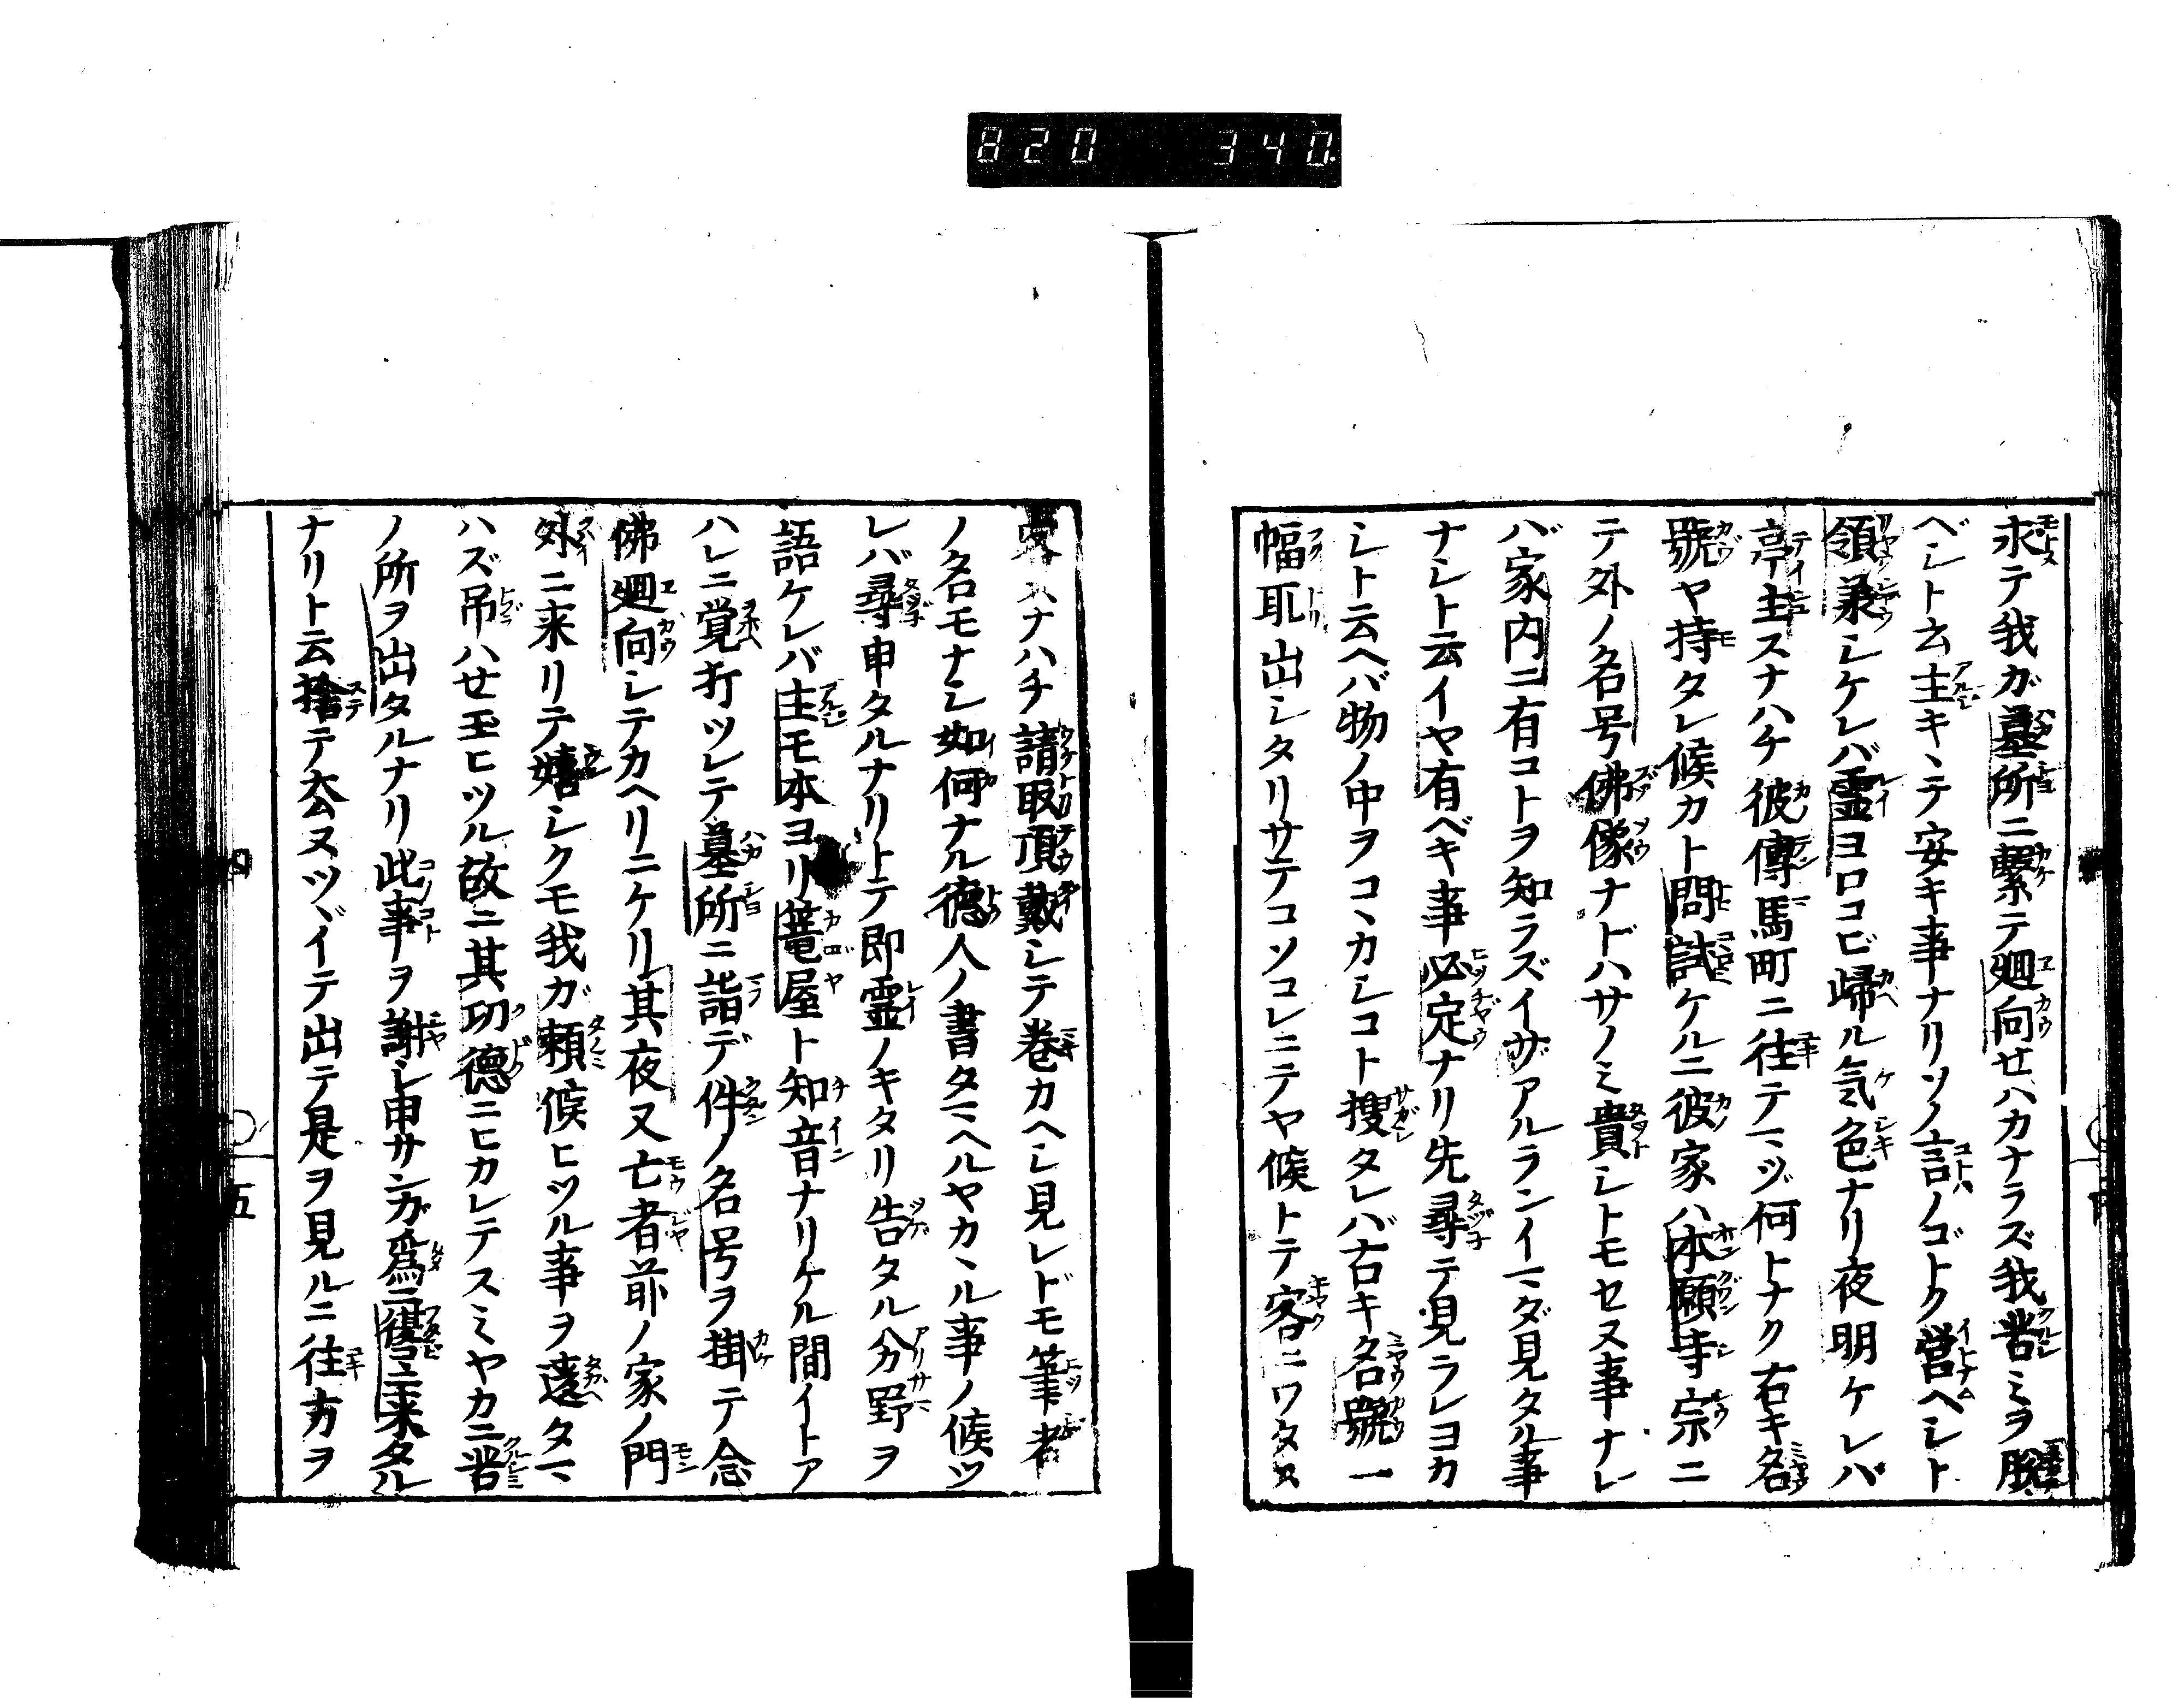 820 340.
求テ我ガ墓所ニ繫テ廻向セハカナラズ我苦ミヲ脱
ベシト云主キヽテ安キ事ナリソノ言ノゴトク営ヘシト
領掌シケレバ霊ヨロコビ帰ル気色ナリ夜明ケレバ
亭主スナハチ彼傳馬町ニ往テマヅ何トナク古キ名
號ヤ持タレ候カト問試ケルニ彼家ハ本願寺宗ニ
テ外ノ名号佛像ナドハサノミ貴シトモセヌ事ナレ
バ家内ニ有コトヲ知ラズイザアルランイマダ見タル事
ナシト云イヤ有ベキ事必定ナリ先尋テ見ラレヨカ
シト云ヘバ物ノ中ヲコヽカシコト搜タレバ古キ名號一
幅取出シタリサテコソコレニテヤ候トテ客ニワタス
スナハチ請取頂戴シテ巻カヘシ見レドモ筆者
ノ名モナシ如何ナル德人ノ書タマヘルヤカヽル事ノ候ツ
レバ尋申タルナリトテ即霊ノキタリ告タル分野ヲ
語ケレバ主モ本ヨリ篭屋ト知音ナリケル間イトア
ハレニ覚打ツレテ墓所ニ詣デ件ノ名号ヲ掛テ念
佛廻向シテカヘリニケリ其夜又亡者前ノ家ノ門
外ニ来リテ嬉シクモ我ガ頼候ヒツル事ヲ違タマ
ハズ吊ハせ玉ヒツル故ニ其功德ニヒカレテスミヤカニ苦
ノ所ヲ出タルナリ此事ヲ謝シ申サンガ爲ニ復ニ来タル
ナリト云捨テ去ヌツヾイテ出テ是ヲ見ルニ往方ヲ
四
五